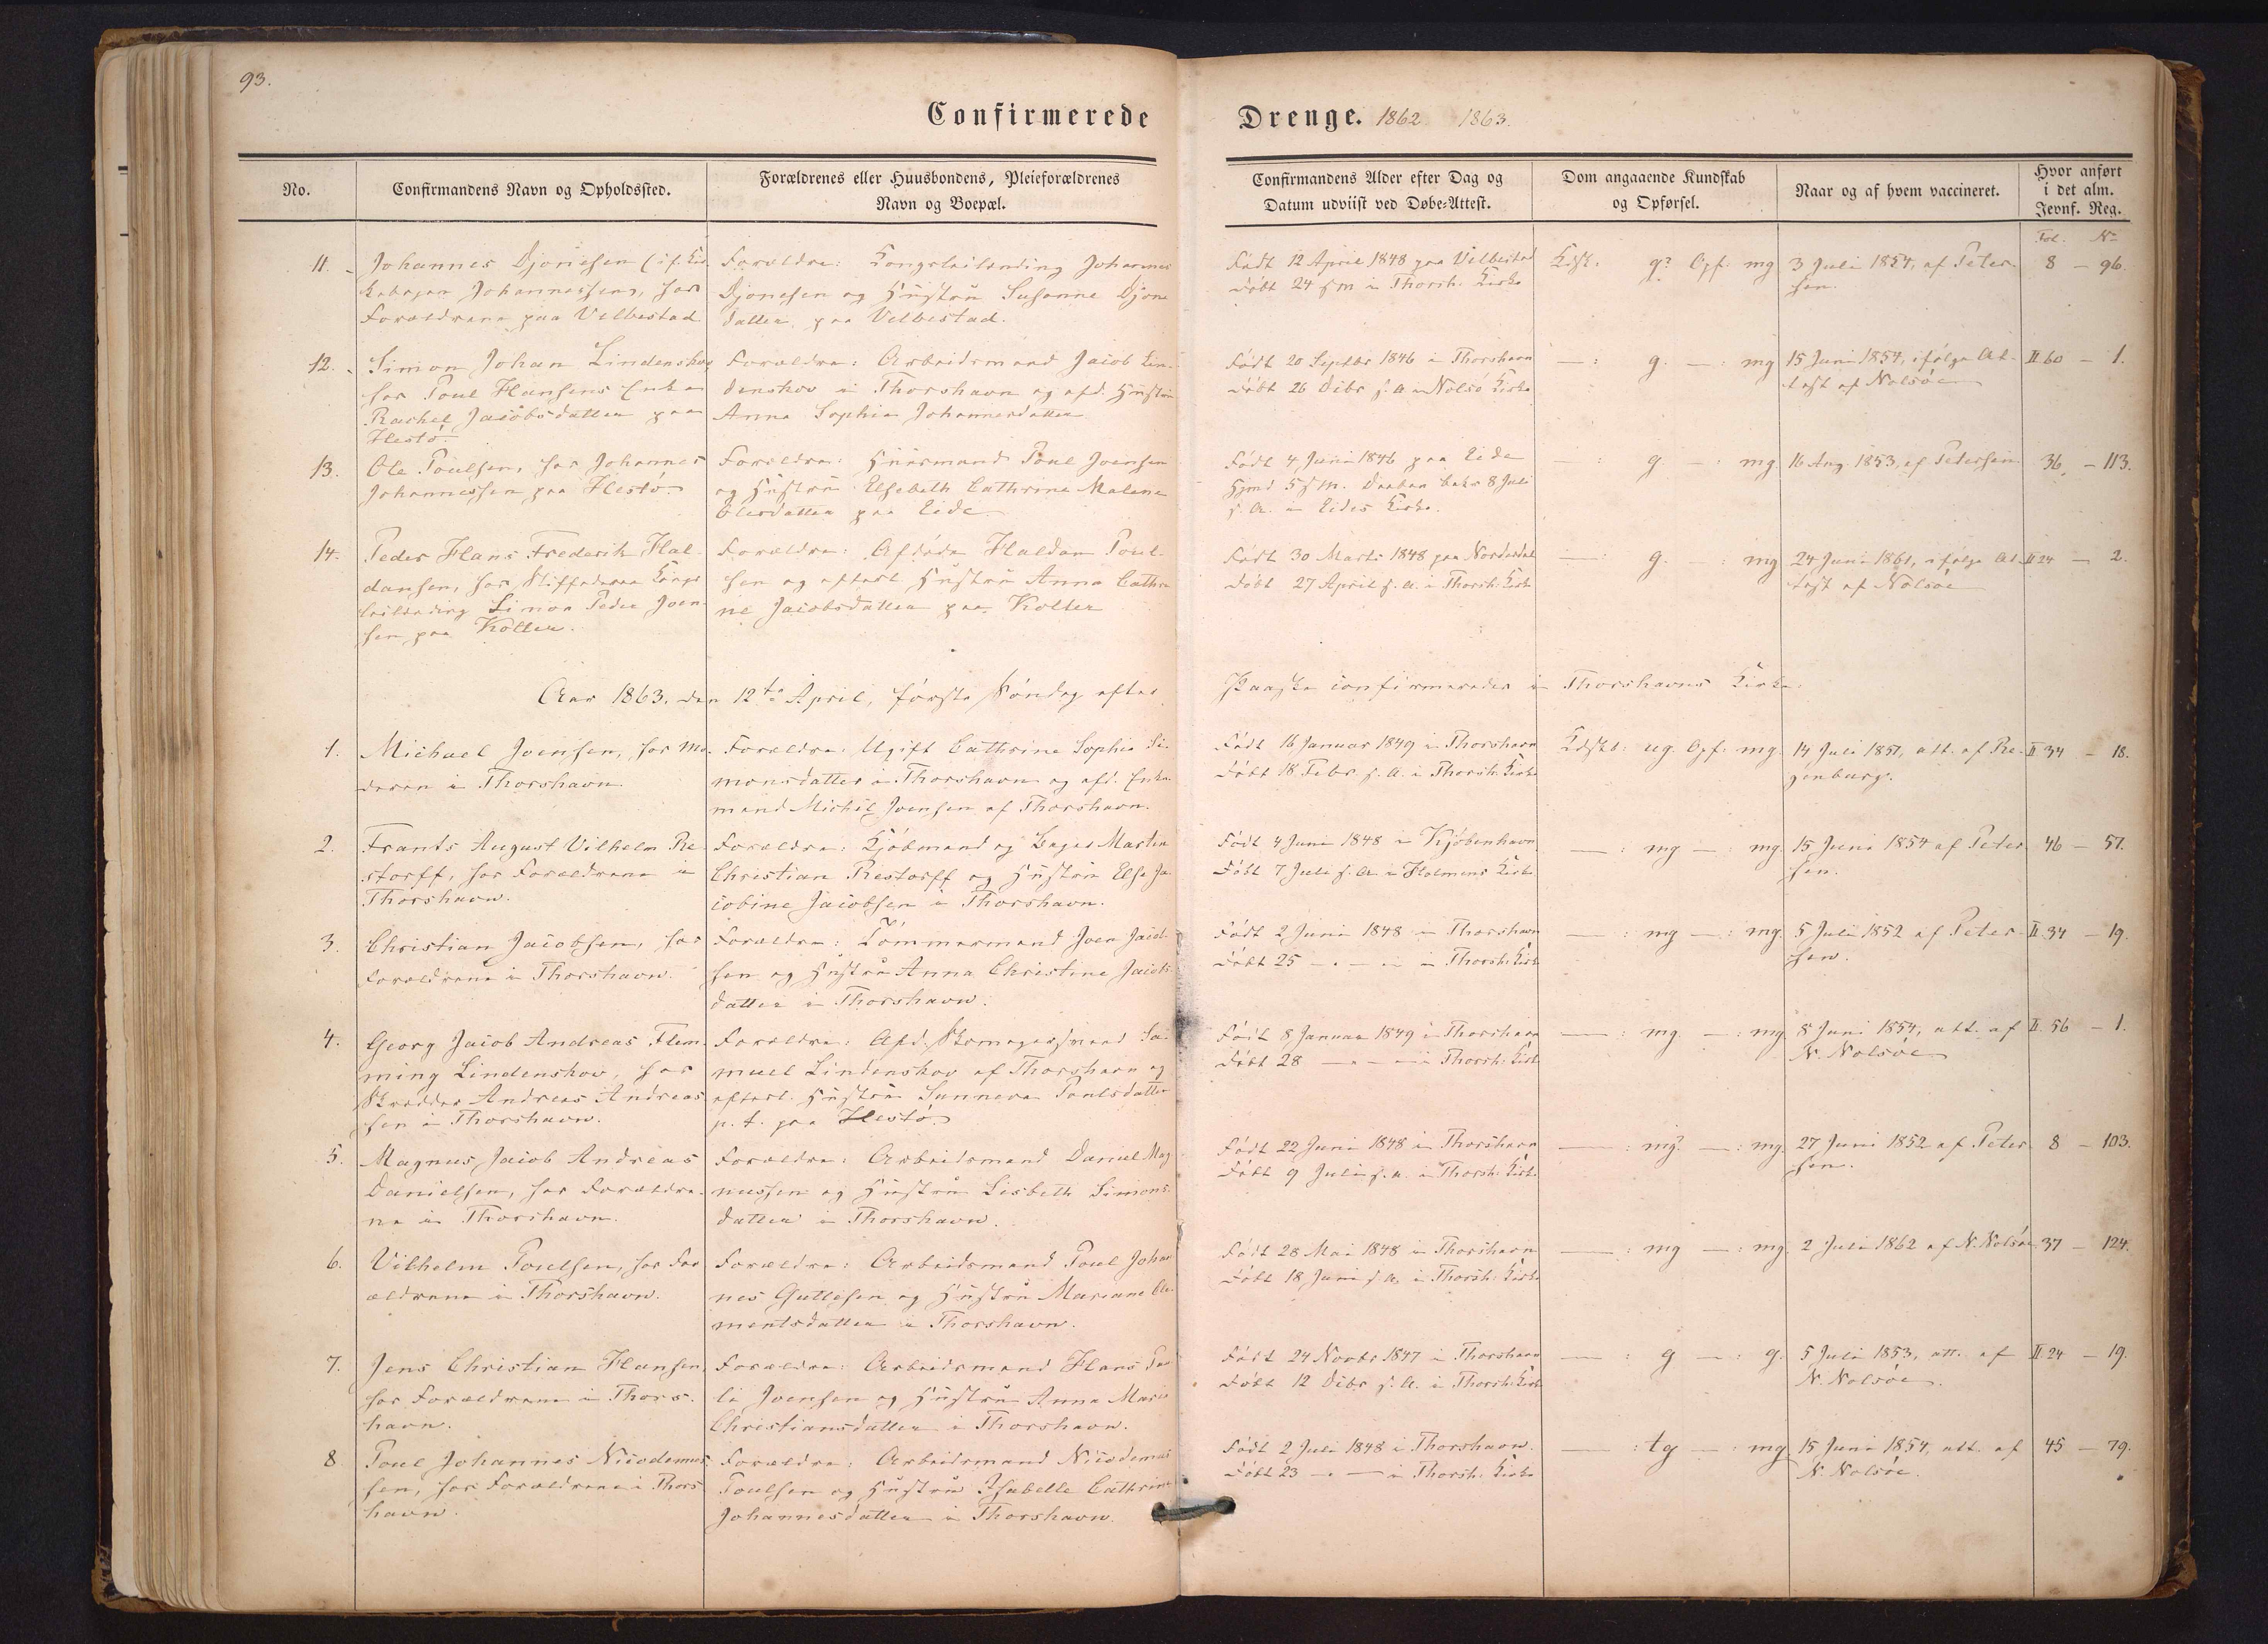 93.
Confirmerede Drenge. 1862 1863.
No.
Confirmandens Navn og Opholdssted.
Forældrenes eller Huusbondens, Pleieforældrenes
Navn og Boepæl.
Confirmandens Alder efter Dag og
Datum udviist ved Døbe-Attest.
Dom angaaende Kundskab
og Opførsel.
Naar og af hvem vaccineret.
Hvor anført
i det alm.
Jevnf. Reg.
Fol. No
11.
Johannes Djonesen (if.
Johannessen, hos
Forældrene paa Velbestad.
Forældre: Kongsleilænding Johannes
Djonesen og Hustru Susanne Djone
datter paa Velbestad.
Født 12 April 1848 paa Velbestad
Døbt 24 s. M. i Thorsh. Kirke
Kdsk: g? Opf: mg
3 Juli 1854, af Peter-
sen.
8 — 96.
12.
Simon Johan Lindenskov
hos Poul Hansens Enke
Rachel Jacobsdatter paa
Hestø.
Forældre: Arbeidsmand Jacob Lin-
denskov i Thorshavn og afd. Hustru
Anna Sophia Johannesdatter
Født 20 Septbr 1846 i Thorshavn
Døbt 26 Dcbr s. A. i Nolsø Kirke
— : g. — : mg
15 Juni 1854, ifølge At-
test af Nolsøe
II 60 — 1.
13.
Ole Poulsen, hos Johannes
Johannessen paa Hestø.
Forældre: Huusmand Poul Joensen
og Hustru Elsebeth Cathrine Malene
Olesdatter paa Eide
Født 4 Juni 1846 paa Eide
Hjmd 5 s. M. Daaben bekr 8 Juli
s. A. i Eides Kirke.
— : g. — : mg.
16 Aug. 1853, af Petersen
36. — 113.
14.
Peder Hans Frederik Hal-
dansen, hos Stiffaderen Kongs
leilænding Simon Peder Joen-
sen paa Kolter.
Forældre: Afdøde Haldan Poul-
sen og efterl. Hustru Anna Cathri
ne Jacobsdatter paa Kolter
Født 30 Marts 1848 paa Norderdal
Døbt 27 April s. A. i Thorsh. Kirke
— : g. — : mg
24 Juni 1861, ifølge At-
test af Nolsøe
II 24 — 2.
Aar 1863, den 12te April, første Søndag efter Paaske confirmeredes i Thorshavns Kirke:
1.
Michael Joensen, hos Mo-
deren i Thorshavn.
Forældre: Ugift Cathrine Sophie Si-
monsdatter i Thorshavn og afd. Enke
mand Michel Joensen af Thorshavn.
Født 16 Januar 1849 i Thorshavn
Døbt 18 Febr s. A. i Thorsh. Kirke
Kdskb: ug. Opf: mg.
14 Juli 1851, att. af Re-
genburg.
II 34 — 18.
2.
Frants August Vilhelm Re-
storff, hos Forældrene i
Thorshavn.
Forældre: Kjøbmand og Bager Martin
Christian Restorff og Hustru Else Ja-
cobine Jacobsen i Thorshavn.
Født 4 Juni 1848 i Kjøbenhavn
Døbt 7 Juli s. A. i Holmens Kirke
— : mg — : mg.
15 Juni 1854 af Peter
sen.
46 — 57.
3.
Christian Jacobsen, hos
Forældrene i Thorshavn.
Forældre: Tømmermand Joen Jacob-
sen og Hustru Anna Christine Jacobs
datter i Thorshavn.
Født 2 Juni 1848 i Thorshavn
Døbt 25 — — i Thorsh. Kirke
— : mg — : mg.
5 Juli 1852 af Peter-
sen.
II 34 — 19.
4.
Georg Jacob Andreas Flem-
ming Lindenskov, hos
Skrædder Andreas Andreas
sen i Thorshavn.
Forældre: Afd. Skomagersvend Sa-
muel Lindenskov af Thorshavn og
efterl. Hustru Sunneva Poulsdatter
p. t. paa Hestø.
Født 8 Januar 1849 i Thorshavn
Døbt 28 — — i Thorsh. Kirke
— : mg — : mg
8 Juni 1854, att. af
N. Nolsøe
II 56 — 1.
5.
Magnus Jacob Andreas
Danielsen, hos Forældre-
ne i Thorshavn.
Forældre: Arbeidsmand Daniel Mag-
nussen og Hustru Lisbeth Simons-
datter i Thorshavn.
Født 22 Juni 1848 i Thorshavn
Døbt 9 Juli s. A. i Thorsh. Kirke
— : mg? — : mg.
27 Juni 1852 af Peter
sen.
8 — 103.
6.
Vilhelm Poulsen, hos For
ældrene i Thorshavn.
Forældre: Arbeidsmand Poul Johan
nes Guttesen og Hustru Mariane Cle-
mentsdatter i Thorshavn.
Født 28 Mai 1848 i Thorshavn
Døbt 18 Juni s. A. i Thorsh. Kirke
— : mg — : mg.
2 Juli 1862 af N. Nolsøe
37 — 124.
7.
Jens Christian Hansen,
hos Forældrene i Thors-
havn.
Forældre: Arbeidsmand Hans Pau
li Joensen og Hustru Anna Marie
Christiansdatter i Thorshavn.
Født 24 Novbr 1847 i Thorshavn
Døbt 12 Dcbr s. A. i Thorsh. Kirke
— : g — : g.
5 Juli 1853, att. af
N. Nolsøe.
II 24 — 19.
8.
Poul Johannes Nicodemus-
sen, hos Forældrene i Thors
havn.
Forældre: Arbeidsmand Nicodemus
Poulsen og Hustru Isabelle Cathrine
Johannesdatter i Thorshavn.
Født 2 Juli 1848 i Thorshavn.
Døbt 23 — — i Thorsh. Kirke
— : tg — : mg
15 Juni 1854, att. af
N. Nolsøe.
45 — 79.